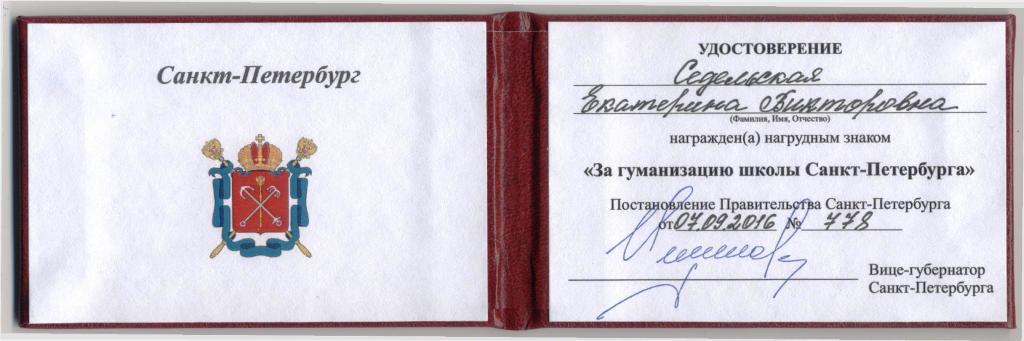 Санкт-Петербург
УДОСТОВЕРЕНИЕ
Седельская
Екатерина Викторовна
(Фамилия, Имя, Отчество)
награжден(а) нагрудным знаком
«За гуманизацию школы Санкт-Петербурга»
Постановление Правительства Санкт-Петербурга
от 07.09.2016 № 778
Вице-губернатор
Санкт-Петербурга